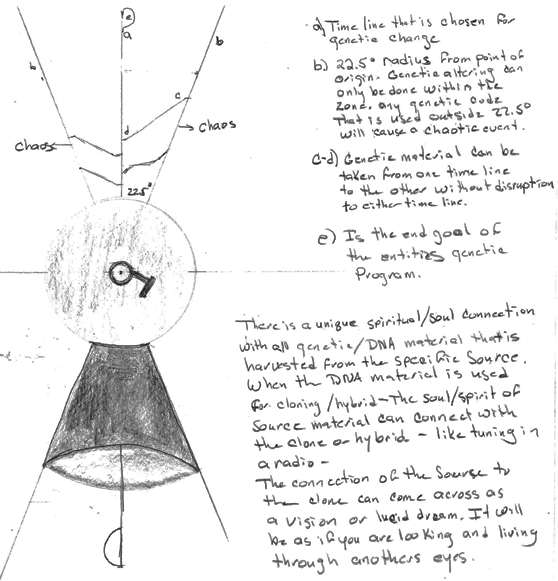 e
a
b
b
c
d
chaos
chaos
22.5°
a) Time line that is chosen for
genetic change
b) 22.5° radius from point of
origin. Genetic altering can
only be done within the
zone, any genetic code
that is used outside 22.5°
will cause a chaotic event.
c-d) Genetic material can be
taken from one time line
to the other without disruption
to either time line.
e) Is the end goal of
the entities genetic
Program.
There is a unique spiritual/soul connection
with all genetic/DNA material that is
harvested from the specific source.
When the DNA material is used
for cloning/hybrid - The soul/spirit of
source material can connect with
the clone or hybrid - like tuning in
a radio -
The connection of the source to
the clone can come across as
a vision or lucid dream. It will
be as if you are looking and living
through anothers eyes.